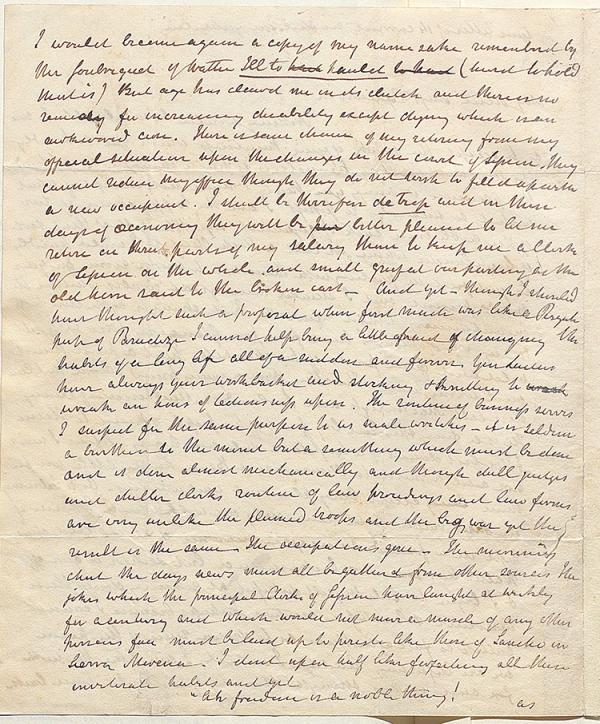 I would become again a copy of my namesake rememberd by
the soubriquet of Watter Ill to haud haulet to haud (hard to hold
that is) But age has clawd me in its clutch and there is no
remedy for increasing disability except dying which is an
awkward cure. There is some chance of my retiring from my
official situation upon the changes in the court of Session. They
cannot reduce my office though they do not wish to fill it up with
a new occupant. I shall be therefore de trop and in these
days of œconomy they will be better pleased to let me
retire on three parts of my salary than to keep me a Clerk
of Session on the whole and small grief at our parting as the
old horse said to the broken cart - And yet - though I should
have thought such a proposal when first made was like a
of Paradize I cannot help being a little afraid of changing the
habits of a long life all of a sudden and forever. You ladies
have always your workbasket and stocking &
an hour of tediousness upon. The routine of business serves
I suspect for the same purpose to us male wretches - it is seldom
a burthen to the mind but a something which must be done
and is done almost mechanically and though dull judges
and duller clerks routine of law proceedings and law forms
are very unlike the plumed troops and the big war yet the
result is the same - The occupation's gone - The mornings
chat the days news must all be gatherd from other sources The
jokes which the principal Clerks of Session have laught at weekly
for a century and which would not move a muscle of any other
persons face must be laid up to perish like those of Sancho in
Sierra Morena. I dont upon half like forgetting all these
inveterate habits and yet
"Ah freedom is a noble thing!"
as